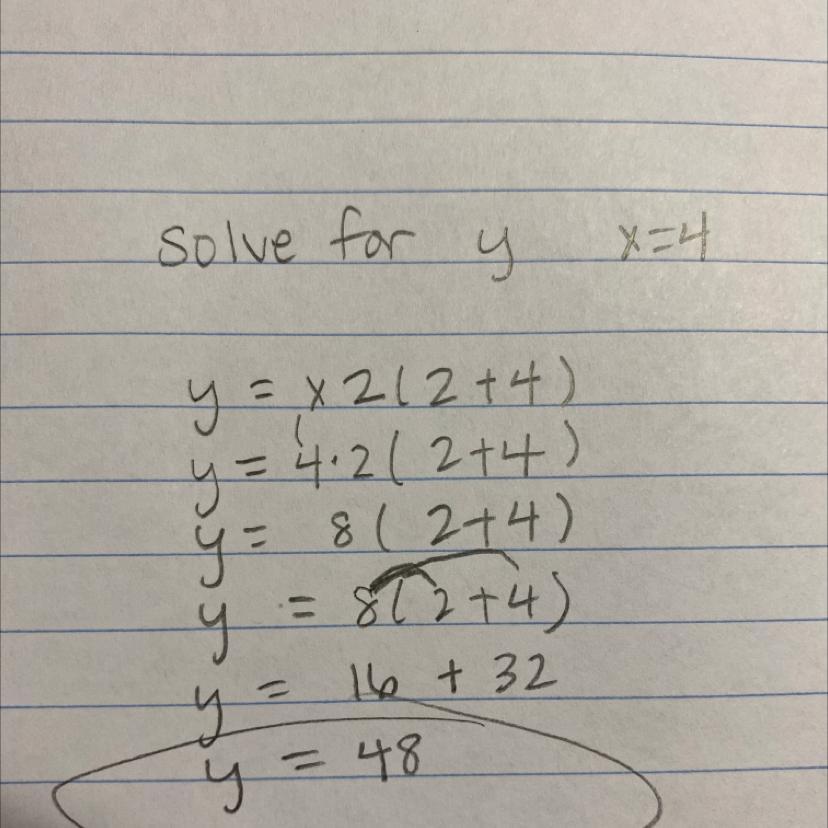 solve for y x=4
y = x2(2+4)
y = 4·2(2+4)
y = 8(2+4)
y = 8(2+4)
y = 16 + 32
y = 48